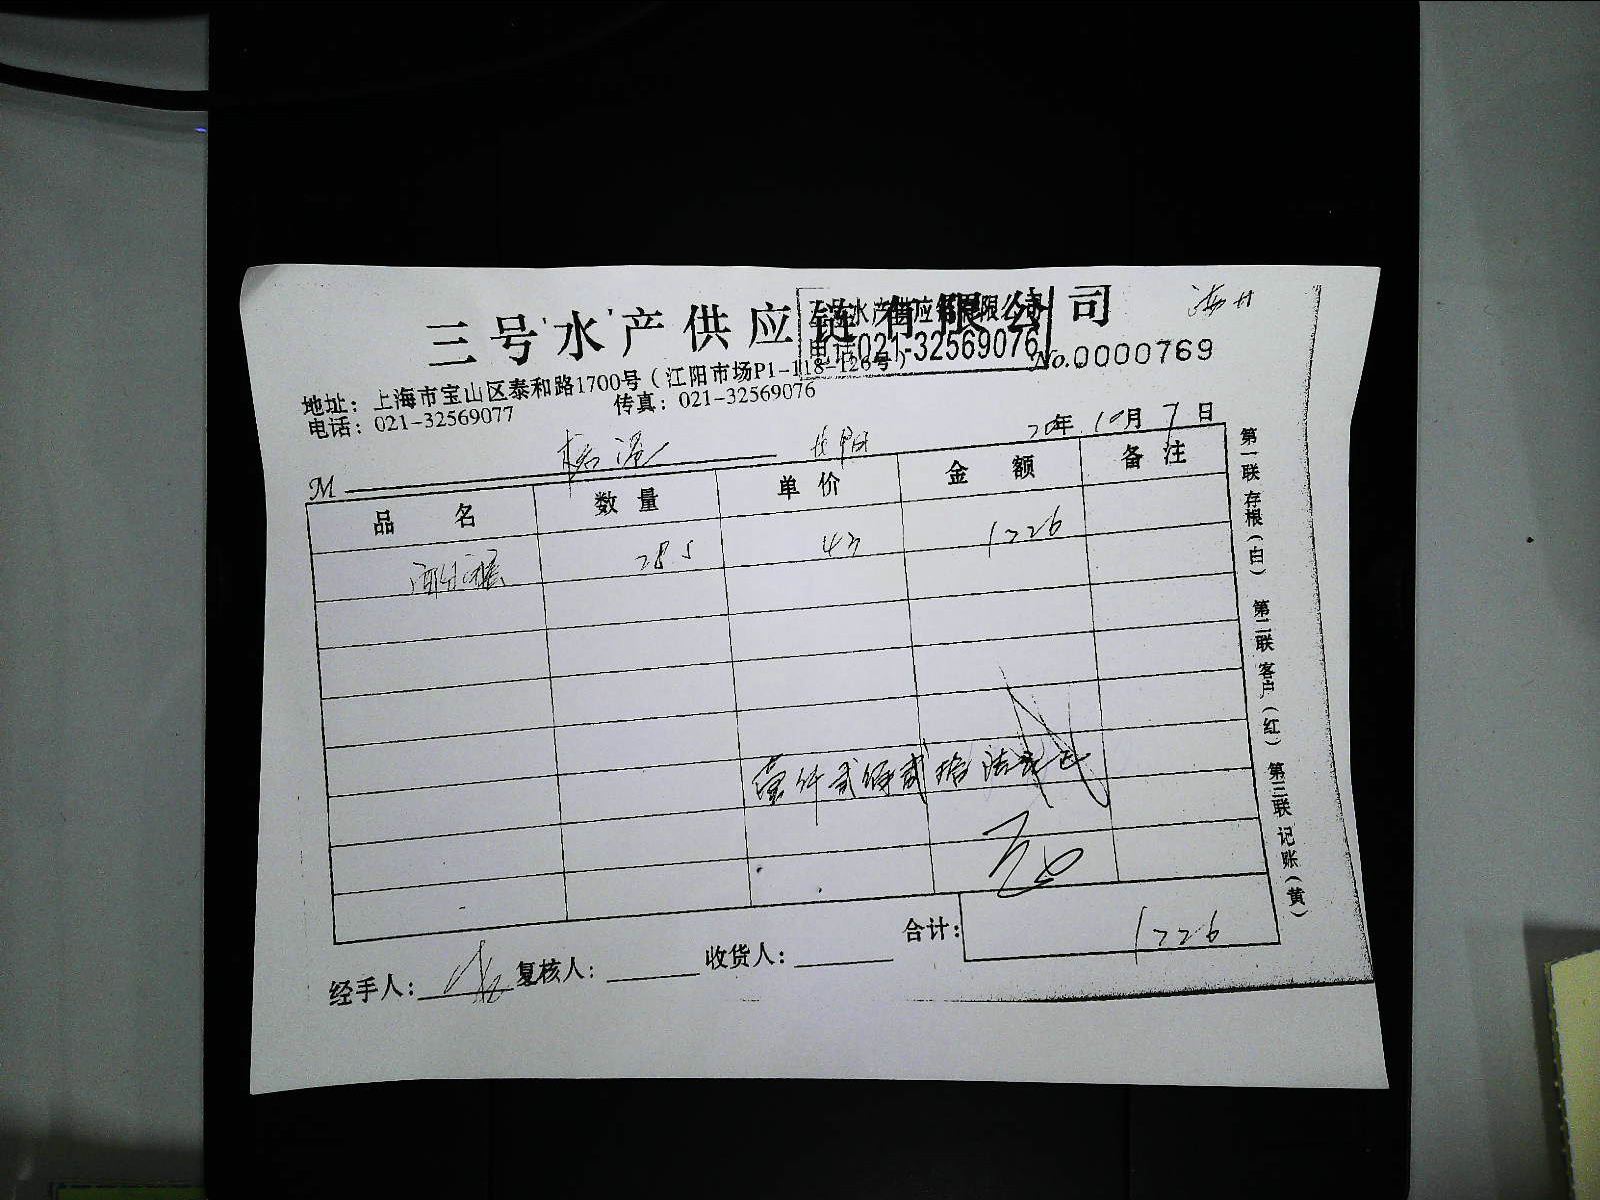 三号水产供应链有限公司
水产供应链有限公司
电话021-32569076
No.0000769
地址：上海市宝山区泰和路1700号（江阳市场P1-118-126号）
电话：021-32569077 传真：021-32569076
20年10月7日
M
品名 数量 单价 金额 备注
285 43 1226
壹仟贰佰贰拾陆元正
合计：1226
经手人： 复核人： 收货人：
第一联存根（白） 第二联客户（红） 第三联记账（黄）